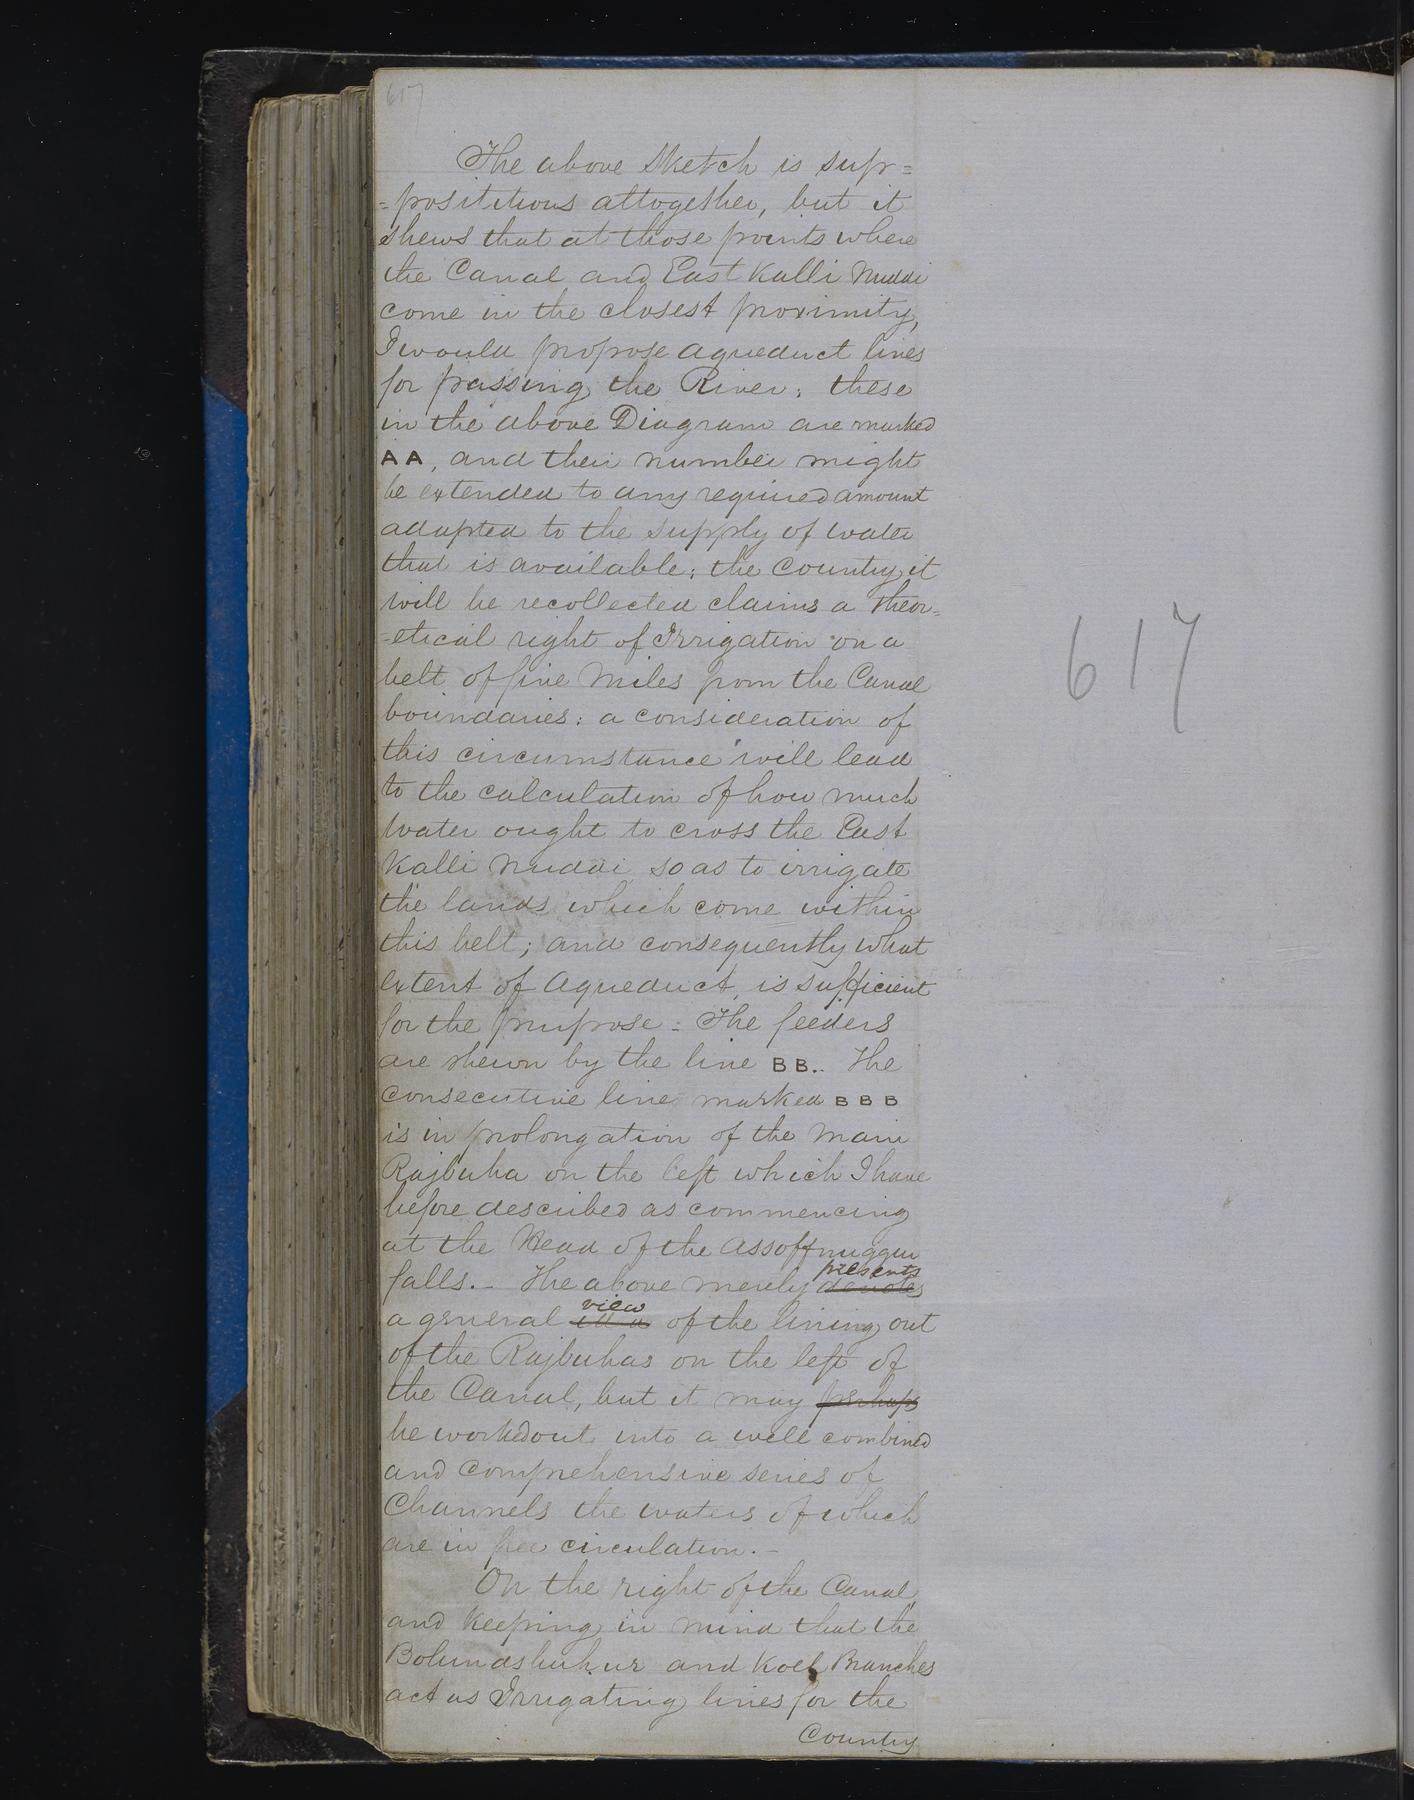 617
The above sketch is sup=
=posititious altogether, but it
shews that at those points where
the Canal and East Kalli Nuddi
come in the closest proximity,
I would propose aqueduct lines
for passing the River; these
in the above Diagram are marked
AA, and their number might
be extended to any required amount
adapted to the supply of water
that is available; the Country it
will be recollected claims a theor=
=etical right of Irrigation on a
belt of five Miles from the Canal
boundaries: a consideration of
this circumstance will lead
to the calculation of how much
Water ought to cross the East
Kalli Nuddi, so as to irrigate
the lands which come within
this belt; and consequently what
extent of Aqueduct, is sufficient
for the purpose = The feeders
are shewn by the line BB.. The
consecutive line marked BBB
is in prolongation of the Main
Rajbuha on the left which I have
before described as commencing
at the Head of the Assoffnuggur
presents
falls.- The above merely denotes
view
a general idea of the lining out
of the Rajbuhas on the left of
the Canal, but it may perhaps
be worked out into a well combined
and comprehensive series of
Channels the waters of which
are in free circulation.-
On the right of the Canal,
and keeping in mind that the
Bolundshuhur and Koel Branches
act as Irrigating lines for the
Country
617